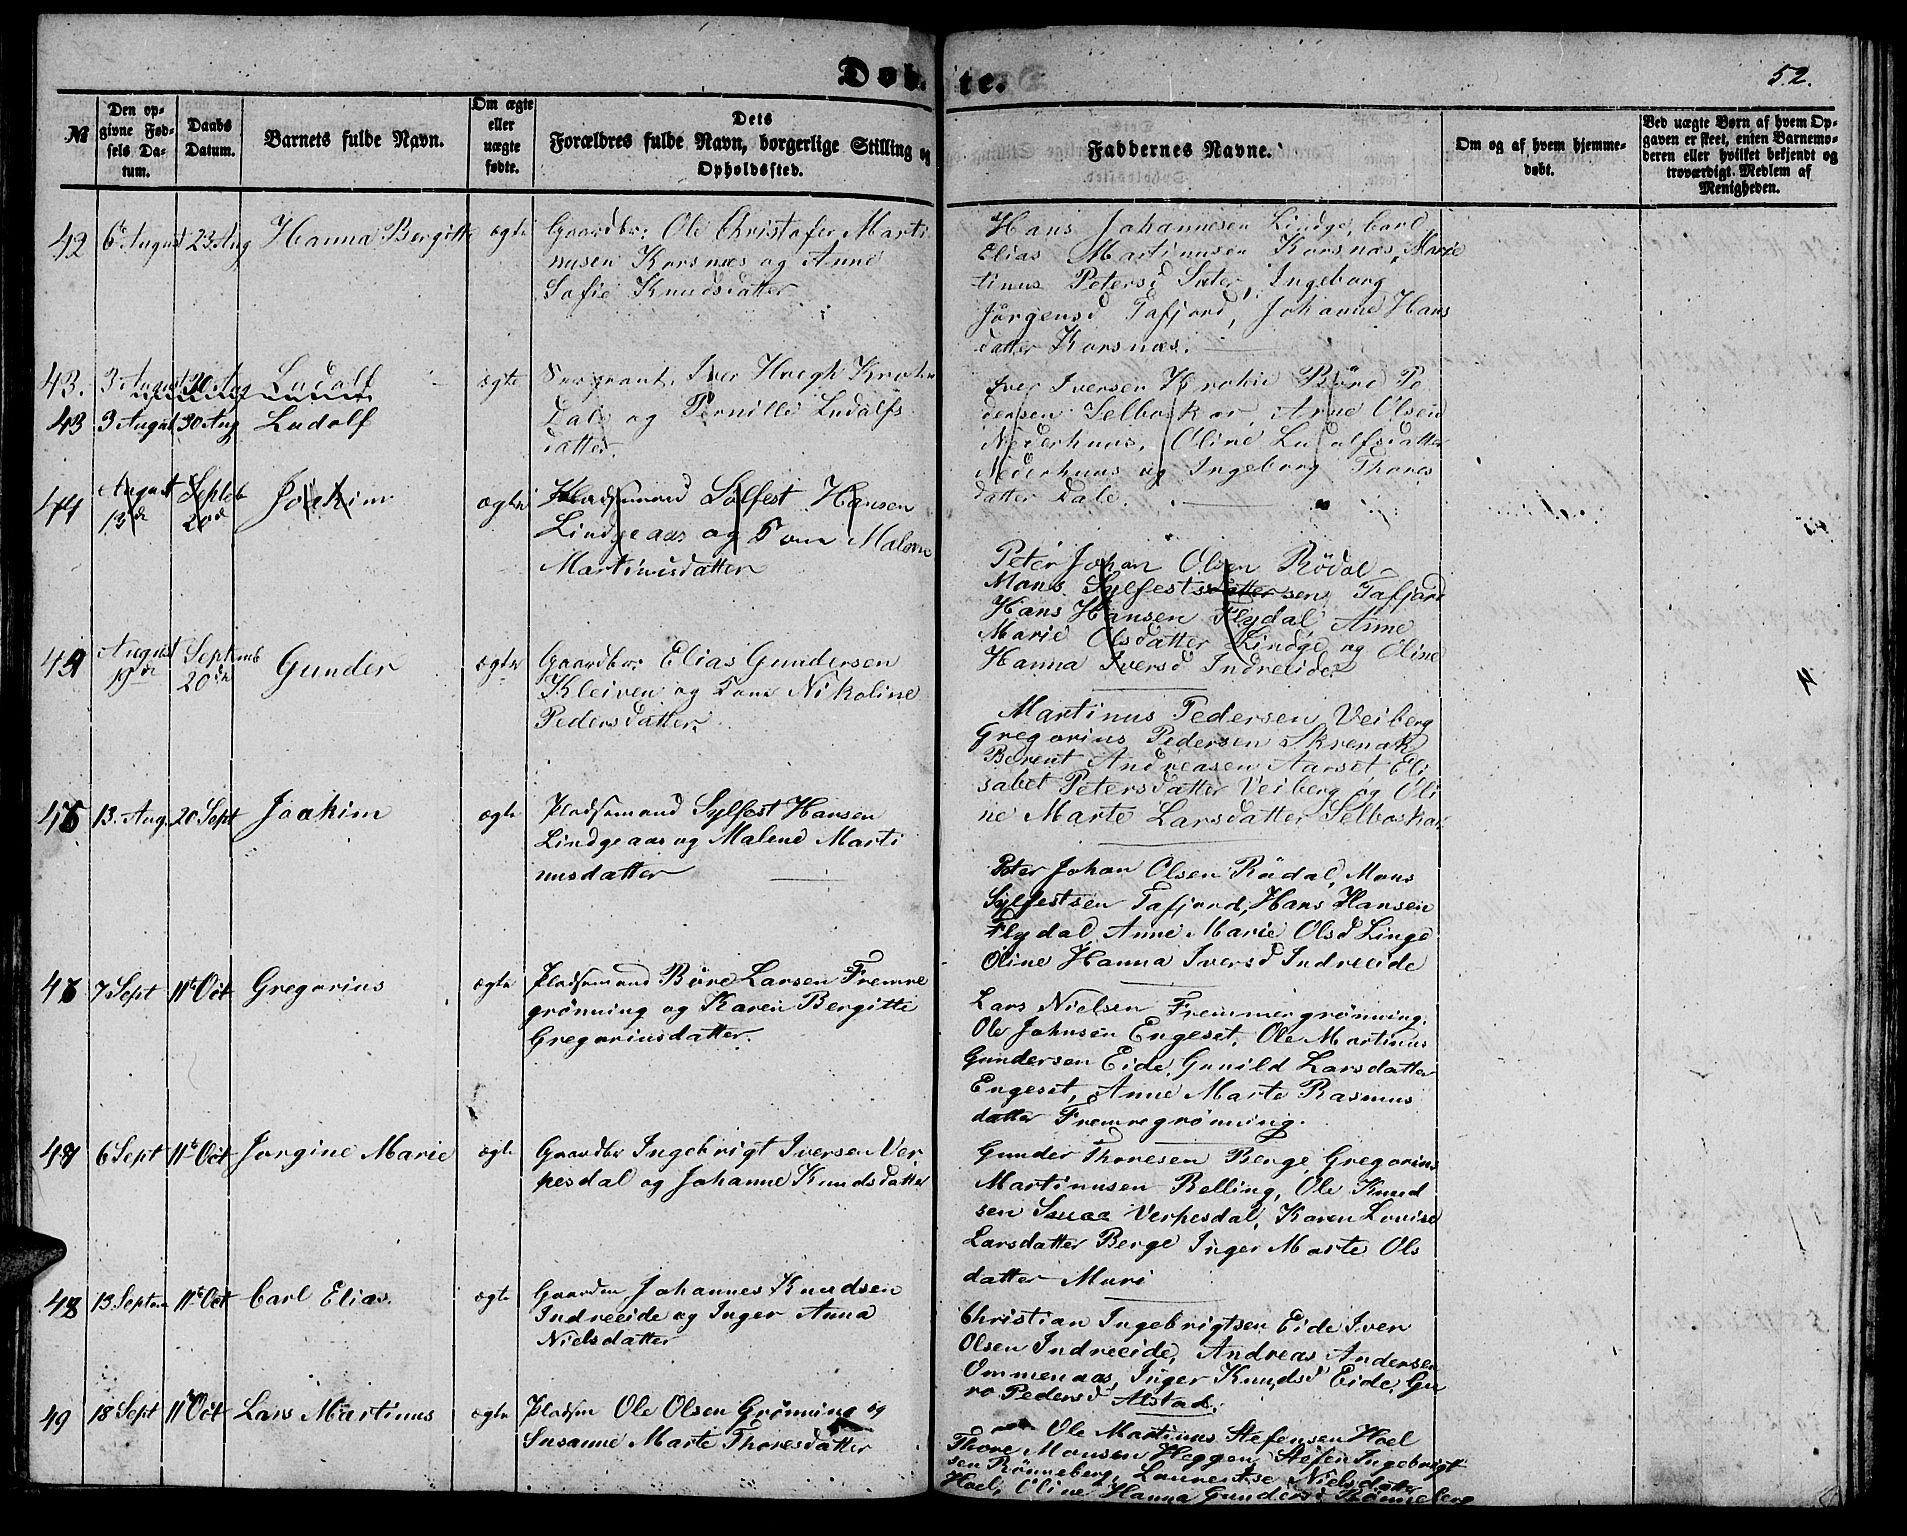 Døbte.
52.
№
Den opgivne Fødsels Datum.
Daabs Datum.
Barnets fulde Navn.
Om ægte eller uægte fødte.
Dets Forældres fulde Navn, borgerlige Stilling og Opholdssted.
Faddernes Navne.
Om og af hvem hjemmedøbt.
Ved uægte Børn af hvem Opgaven er skeet, enten Barnemoderen eller hvilket bekjendt og troværdigt Medlem af Menigheden.
42 6te August 23 Aug Hanna Bergitte ægte Gaardbr: Ole Christofer Marti
nusen Korsnæs og Anne
Sofie Knudsdatter
Hans Johannesen Lindge, Carl
Elias Martinusen Korsnæs, Marie
tinus Petersd Sæter, Ingeborg
Jørgensd Tafjord, Johanne Hans
datter Korsnæs.
43. 3 August 30 Aug Ludolf ægte Sergeant, Iver Hoegh Krohn
43 3 August 30 Aug Ludolf
Dale og Pernille Ludolfs
datter.
Iver Iversen Krohn Böre Pe
dersen Selboskar, Arne Olsen
Nederhuus, Oline Ludolfsdatter
Nederhuus og Ingeborg Thores
datter Dale.
44 August 13de Septeb 20de Joakim ægte Pladsmand Sölfest Hansen
Lindgeaas og Malene
Martinusdatter
Peter Johan Olsen Rødal
Mons Sylfestsdattersen Tafjord
Hans Hansen Flydal Anne
Marie Olsdatter Lindge og Oline
Hanna Iversd Indreeide
44 August 19de Septemb 20de Gunder ægte Gaardbr: Elias Gundersen
Kleiven og Nikoline
Pedersdatter.
Martinus Pedersen Veiberg
Gregorius Pedersen Skrenak
Berent Andreasen Aarset Eli
sabet Petersdatter Veiberg og Oli
ne Marte Larsdatter Selboskar
45 13. Aug. 20 Sept Joakim ægte Pladsmand Sylfest Hansen
Lindgeaas og Malene Marti
nusdatter
Peter Johan Olsen Rødal, Mons
Sylfestsen Tafjord, Hans Hansen
Flydal, Anne Marie Olsd Linge
Oline Hanna Iversd Indreeide
46 7 Sept 11te Oct Gregorius ægte Pladsmand Böre Larsen Fremre
grönning og Karen Bergitte
Gregoriusdatter.
Lars Nielsen Fremmergrönning,
Ole Johnsen Engeset, Ole Martinus
Gundersen Eide, Gunild Larsdatter
Engeset, Anne Marte Rasmus
datter Fremregrönning.
47 6 Sept 11te Oct Jorgine Marie ægte Gaardbr Ingebrigt Iversen Ver
pesdal og Johanne Knudsdatter
Gunder Thoresen Berge, Gregorius
Martinusen Relling, Ole Knud
sen Verpesdal, Karen Lovise
Larsdatter Berge Inger Marte Ols
datter Muri
48 13 Septem 11te Oct Carl Elias. ægte Gaardm Johannes Knudsen
Indreeide og Inger Anna
Nielsdatter
Christian Ingebrigtsen Eide Iver
Olsen Indreeide, Andreas Andersen
Ommenaas, Inger Knudsd Eide, Gu
ro Pedersd Alstad.
49 18 Sept 11te Oct Lars Martinus ægte Pladsm Ole Olsen Grönning og
Susanne Marte Thoresdatter
Ole Martinus Stefensen Hoel
Thore Monsen Heggen, Stefen Ingebrigt
sen Rönneberg, Laurentse Nielsdatter
Hoel, Oline Hanna Gundersd Rönneberg